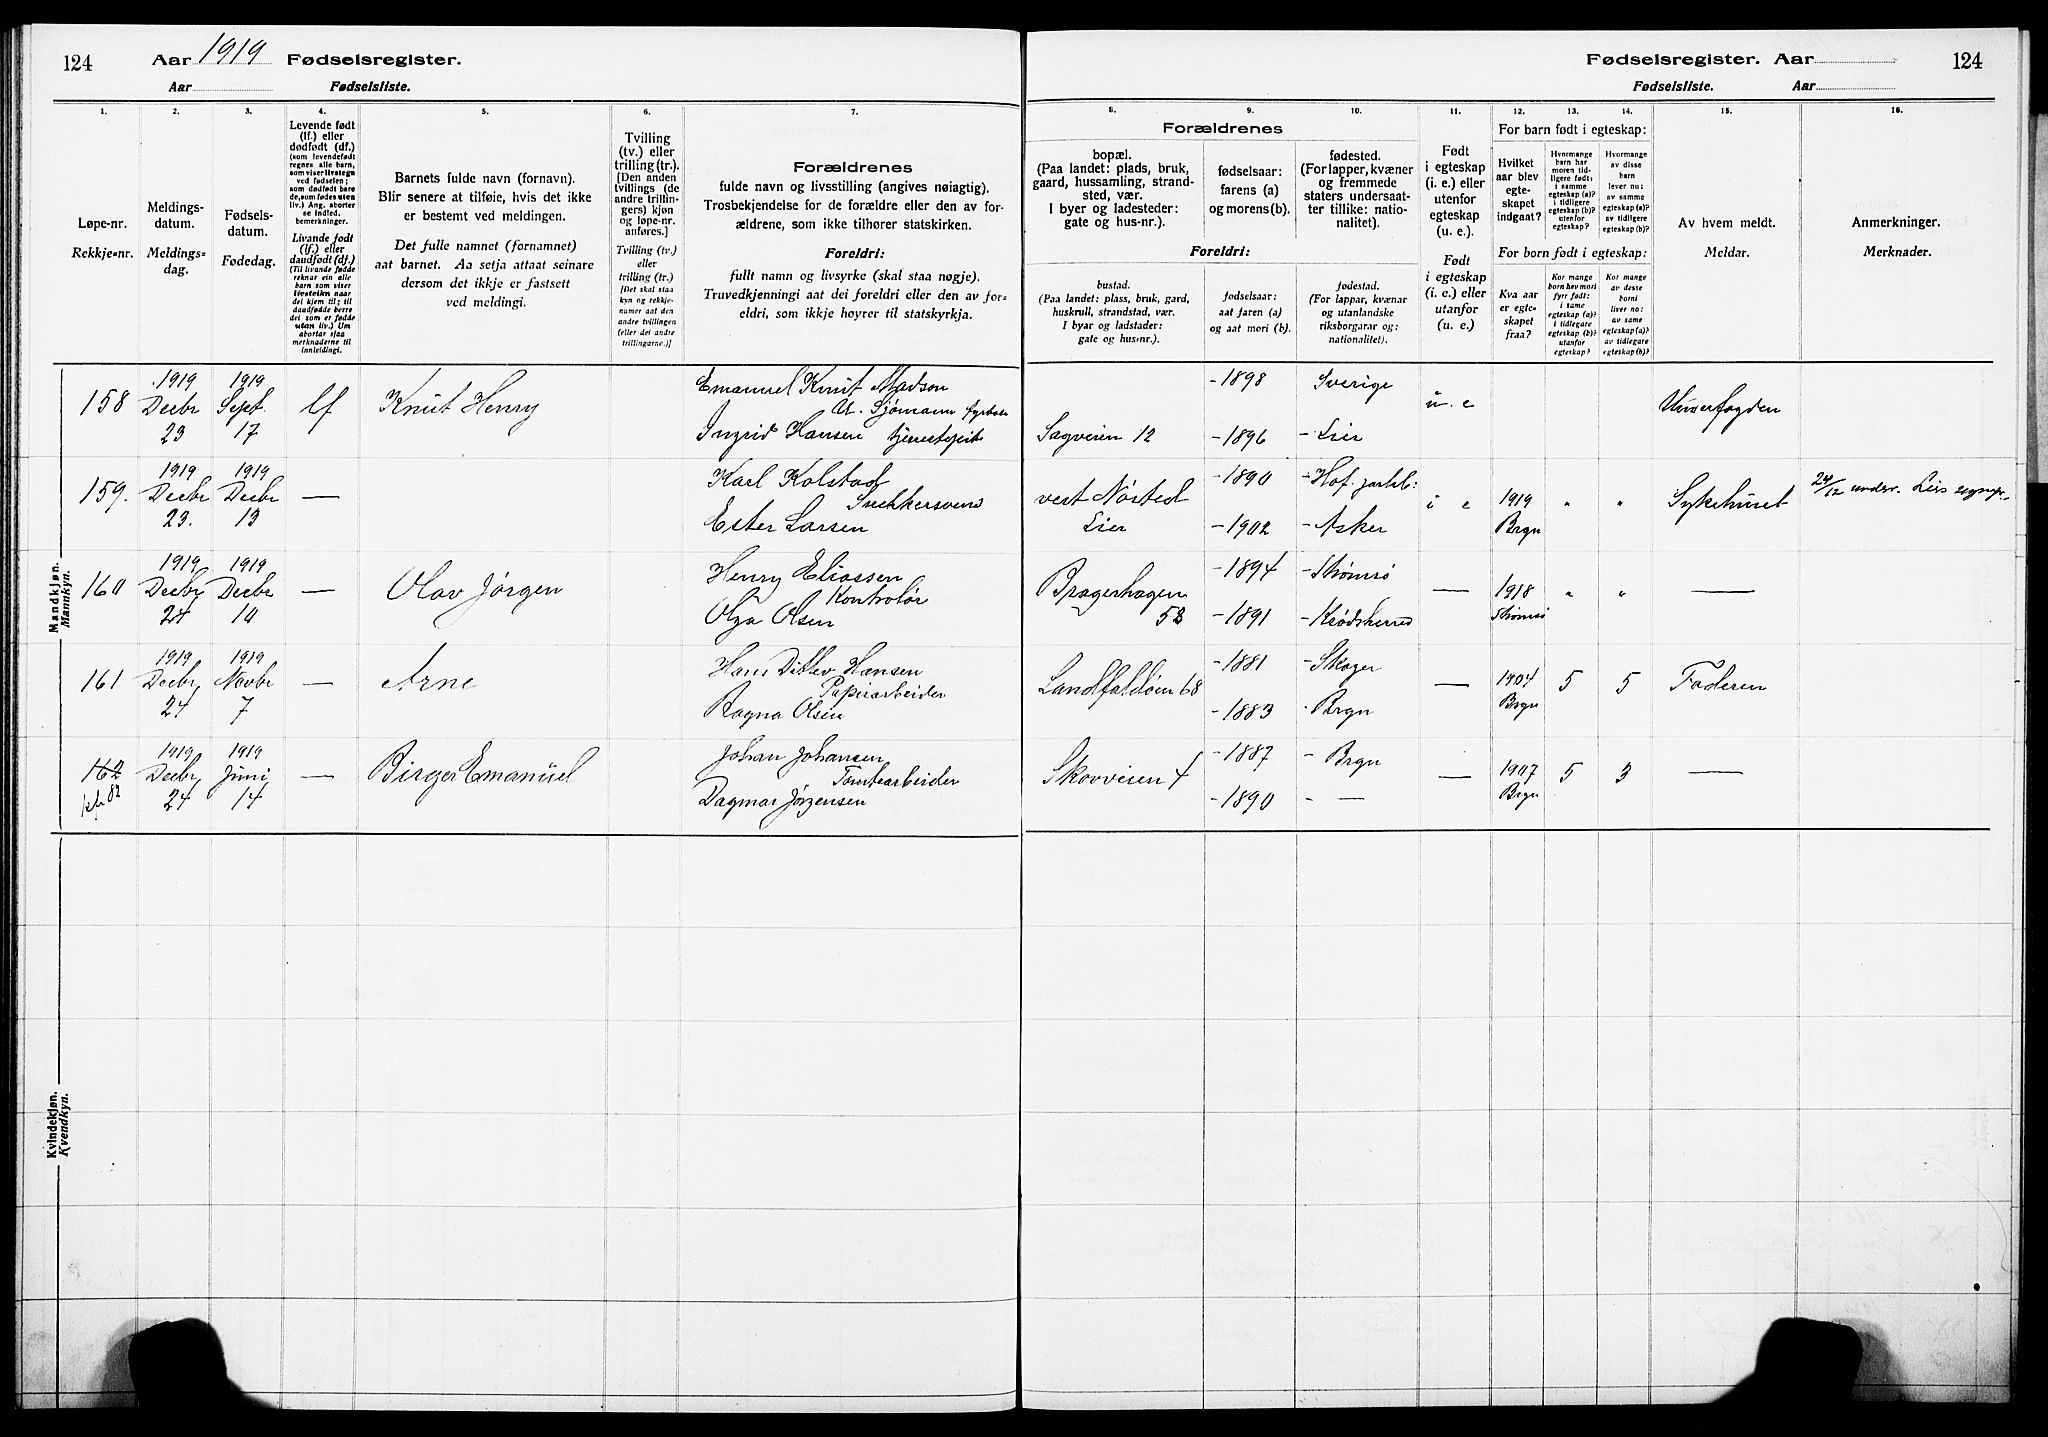 124
Aar 1919 Fødselsregister.
Aar Fødselsliste.
1. 2. 3. 4. 5. 6. 7.
Løpe-nr.
Rekkje=nr.
Meldings-
datum.
Meldings=
dag.
Fødsels-
datum.
Fødedag.
Levende født
(lf.) eller
dødfødt (df.)
(som levendefødt
regnes alle barn,
som viser livstegn
ved fødselen;
som dødfødt bare
de, som fødes uten
liv.) Ang. aborter
se indled.
bemerkninger.
Livande født
(lf.) eller
daudfødt (df.)
(Til livande fødde
reknar ein alle
barn som viser
livsteikn naar
dei kjem til; til
daudfødde berre
dei som er fødde
utan liv.) Um
abortar sjaa
merknaderne til
innleidingi.
Barnets fulde navn (fornavn).
Blir senere at tilføie, hvis det ikke
er bestemt ved meldingen.
Det fulle namnet (fornamnet)
aat barnet. Aa setja attaat seinare
dersom det ikkje er fastsett
ved meldingi.
Tvilling
(tv.) eller
trilling (tr.).
[Den anden
tvillings (de
andre trillin-
gers) kjøn
og løpe-nr.
anføres.]
Tvilling (tv.)
eller
trilling (tr.)
[Det skal staa
kyn og rekkje-
numer aat den
andre tvillingen
(eller dei andre
trillingarne.)]
Forældrenes
fulde navn og livsstilling (angives nøiagtig).
Trosbekjendelse for de forældre eller den av for-
ældrene, som ikke tilhører statskirken.
Foreldri:
fullt namn og livsyrke (skal staa nøgje).
Truvedkjenningi aat dei foreldri eller den av for-
eldri, som ikkje høyrer til statskyrkja.
Mandkjøn.
Mannkyn.
158
1919
Decbr
23
1919
Sept.
17
lf
Knut Henry
Emanuel Knut Madson
Ingrid Hansen
159.
1919
Decbr
23.
1919
Decbr
13
—
Karl Kolstad
Snekkersvend
Ester Larsen
160
1919
Decbr
24
1919
Decbr
10
—
Olav Jørgen
Henry Eliassen
Kontrolør
Olga Olsen
161
1919
Decbr
24
1919
Novbr
7
—
Arne
Hans Ditlev Hansen
Papirarbeider
Ragna Olsen
162
82
1919
Decbr
24
1919
Juni
14
—
Birger Emanuel
Johan Johansen
Tomtearbeider
Dagmar Jørgensen
Kvindekjøn.
Kvendkyn.
Fødselsregister. Aar 124
Fødselsliste. Aar
8. 9. 10. 11. 12. 13. 14. 15. 16.
Forældrenes
bopæl.
(Paa landet: plads, bruk,
gaard, hussamling, strand-
sted, vær.
I byer og ladesteder:
gate og hus-nr.).
fødselsaar:
farens (a)
og morens (b).
fødested.
(For lapper, kvæner
og fremmede
staters undersaat-
ter tillike: natio-
nalitet).
Foreldri:
bustad.
(Paa landet: plass, bruk, gard,
huskrull, strandstad, vær.
I byar og ladstader:
gate og hus=nr.).
fødselsaar:
aat faren (a)
og aat mori (b).
fødestad.
(For lappar, kvænar
og utanlandske
riksborgarar og:
nationalitet).
Født
i egteskap
(i. e.) eller
utenfor
egteskap
(u. e.).
Født
i egteskap
(i. e.) eller
utanfor
egteskap
(u. e.)
For barn født i egteskap:
Hvilket
aar blev
egte-
skapet
indgaat?
Hvormange
barn har
moren tid-
ligere født:
i samme
egteskap (a)?
i tidligere
egteskap (b)?
utenfor
egteskap?
Hvormange
av disse
barn
lever nu:
av samme
egteskap (a)?
av tidligere
egteskap (b)?
For born født i egteskap:
Kva aar
er egte-
skapet
fraa?
Kor mange
born hev mori
fyrr født:
i same
egteskap (a)?
i tidlegare
egteskap (b)?
utanfor
egteskap?
Kor mange
av desse
borni
liver no:
av same
egteskap (a)?
av tidlegare
egteskap (b)?
Av hvem meldt.
Meldar.
Anmerkninger.
Merknader.
Sagveien 12
- 1898
- 1896
Sverige
- Lier
u. e
vest Nøsted
Lier
- 1890
- 1902
- Hof
- Asker
i e
1919
Brgn
"
"
Sykehuset
24/12 underr.
Bragerhagen
53
- 1894
- 1891
- Strømsø
- Krødsherred
—
1918
Strømsø
"
"
—
Landfaldøen 68
- 1881
- 1883
- Skoger
- Brgn
—
1904
Brgn
5
5
Faderen
Skovveien 4
- 1887
- 1890
- Brgn
- —
—
1907
Brgn
5
3
—